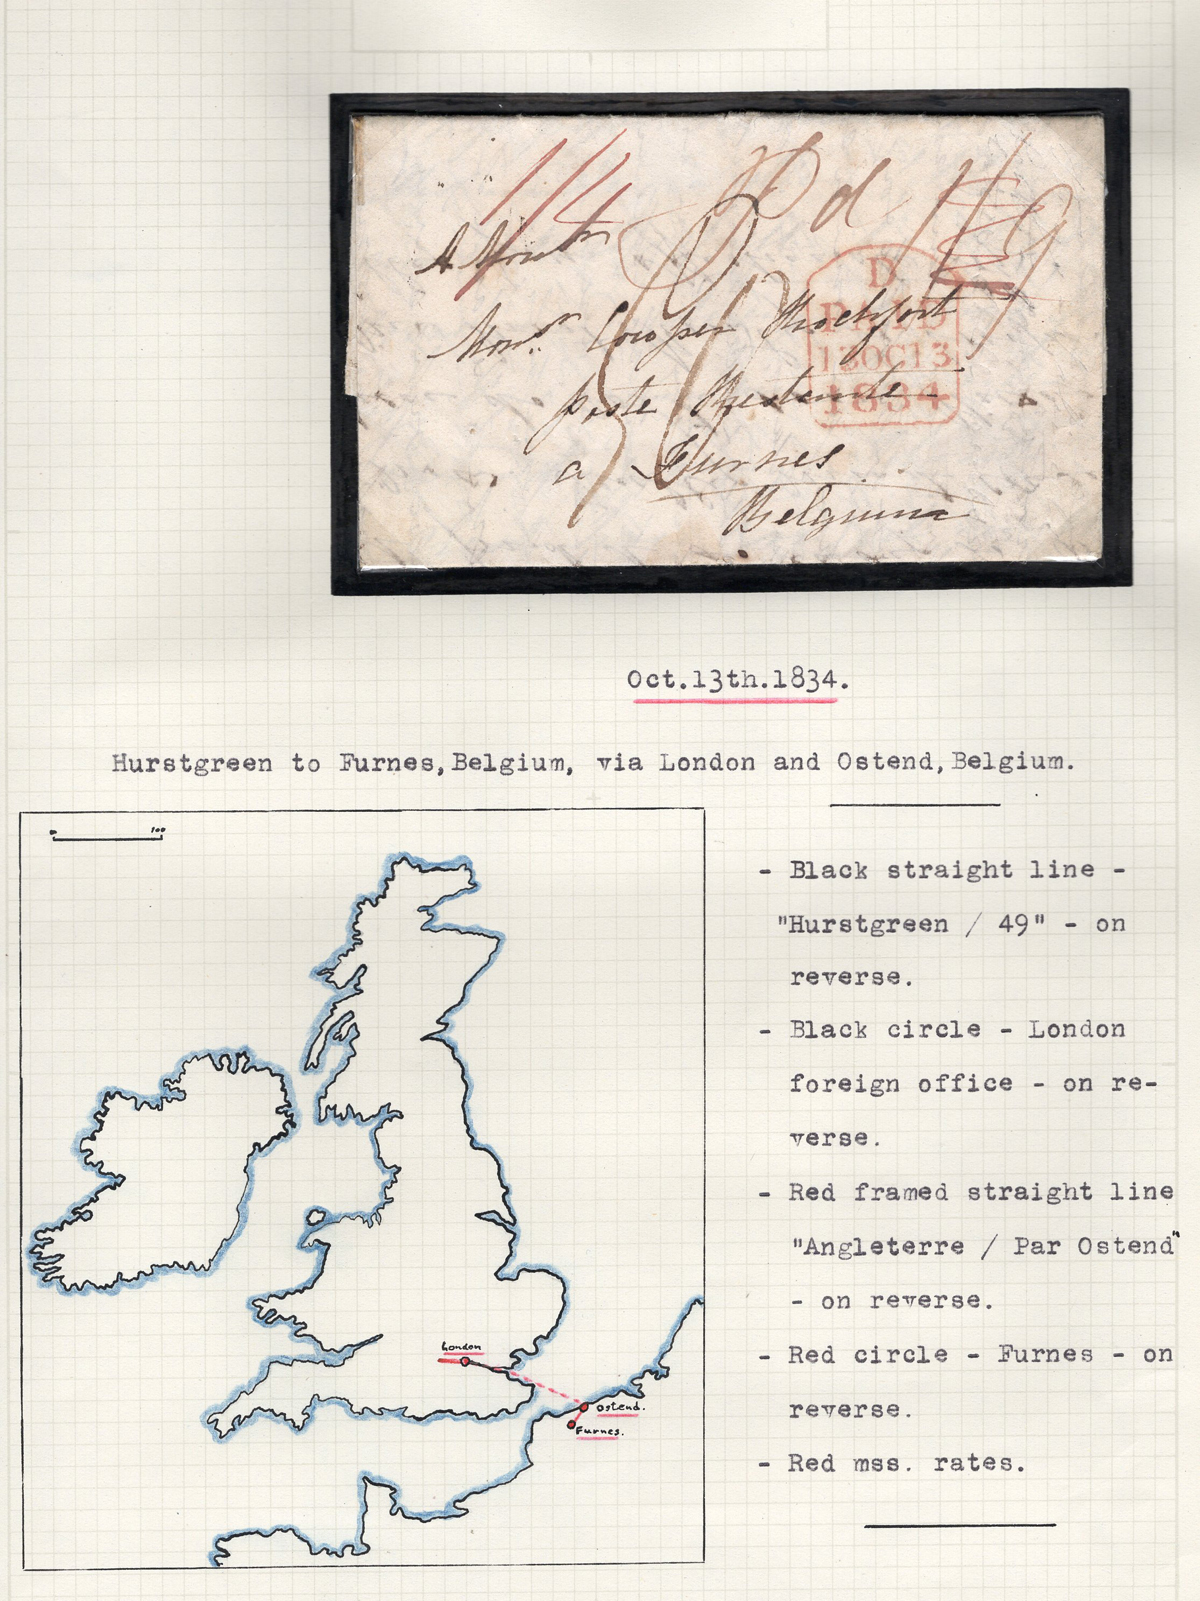 1/4
Pd 1/9
A Monsr
Monsr. Cooper Rochfort
poste Restante
a Furnes
Belgium
D
PAID
13OC13
1834
Oct.13th.1834.
Hurstgreen to Furnes,Belgium, via London and Ostend,Belgium.
0 100
London
Ostend.
Furnes.
- Black straight line -
"Hurstgreen / 49" - on
reverse.
- Black circle - London
foreign office - on re-
verse.
- Red framed straight line
"Angleterre / Par Ostend"
- on reverse.
- Red circle - Furnes - on
reverse.
- Red mss. rates.